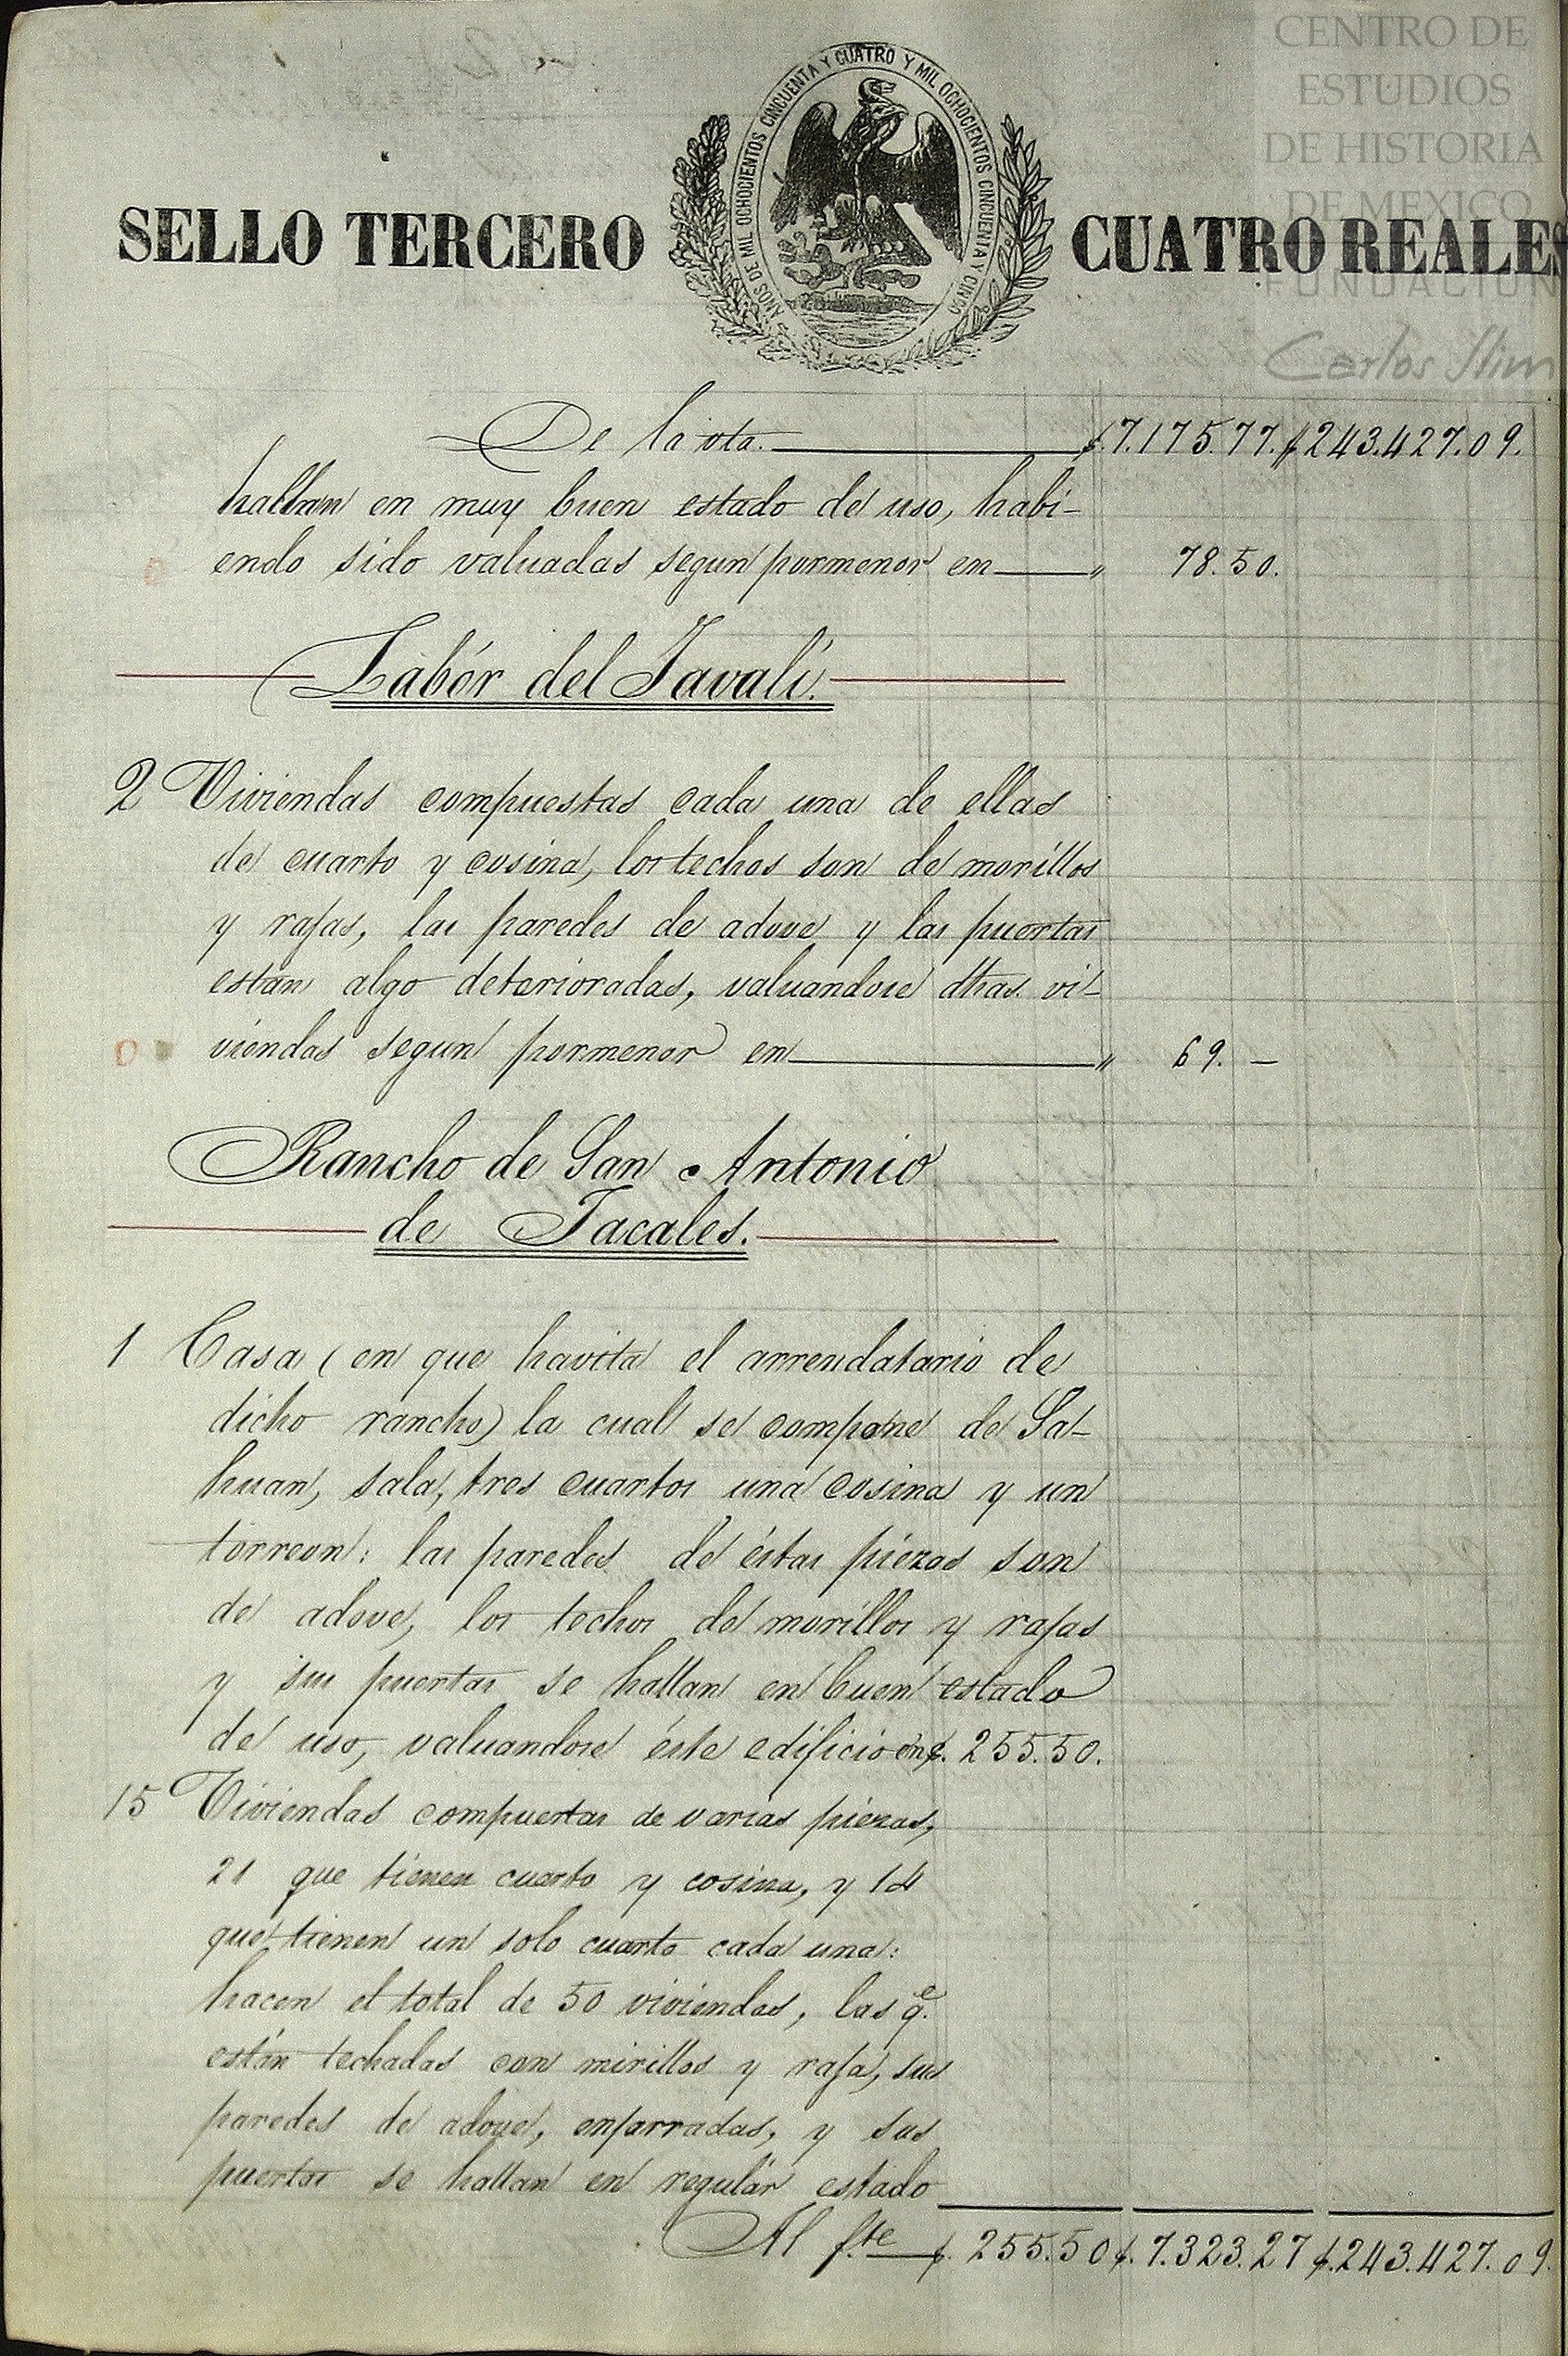 CENTRO DE
ESTUDIOS
DE HISTORIA
DE MEXICO
FUNDACION
Carlos Slim
AÑOS DE MIL OCHOCIENTOS CINCUENTA Y CUATRO Y MIL OCHOCIENTOS CINCUENTA Y CINCO
SELLO TERCERO CUATRO REALES
De la vta. $.7.175.77. $243.427.09.
hallan en muy buen estado de uso, habi-
endo sido valuadas segun pormenor en " 78.50.
Labór del Javalí.
2 Viviendas compuestas cada una de ellas
de cuarto y cosina, los techos son de morillos
y rajas, las paredes de adove y las puertas
están algo deterioradas, valuandose dhas. vi-
viendas segun pormenor en " 69. —
Rancho de San Antonio
de Jacales.
1 Casa (en que havita el arrendatario de
dicho rancho) la cual se compone de Sa-
huan, sala, tres cuartos una cosina y un
torreon: las paredes de éstas piezas son
de adove, los techos de morillos y rajas
y sus puertas se hallan en buen estado
de uso, valuandose éste edificio en $. 255.50.
15 Viviendas compuestas de varias piezas,
21 que tienen cuarto y cosina, y 14
que tienen un solo cuarto cada una:
hacen el total de 50 viviendas, las qe.
están techadas con mirillos y raja, sus
paredes de adove, enjarradas, y sus
puertas se hallan en regulár estado
Al fte. $. 255.50 $. 7.323.27 $.243.427.09.